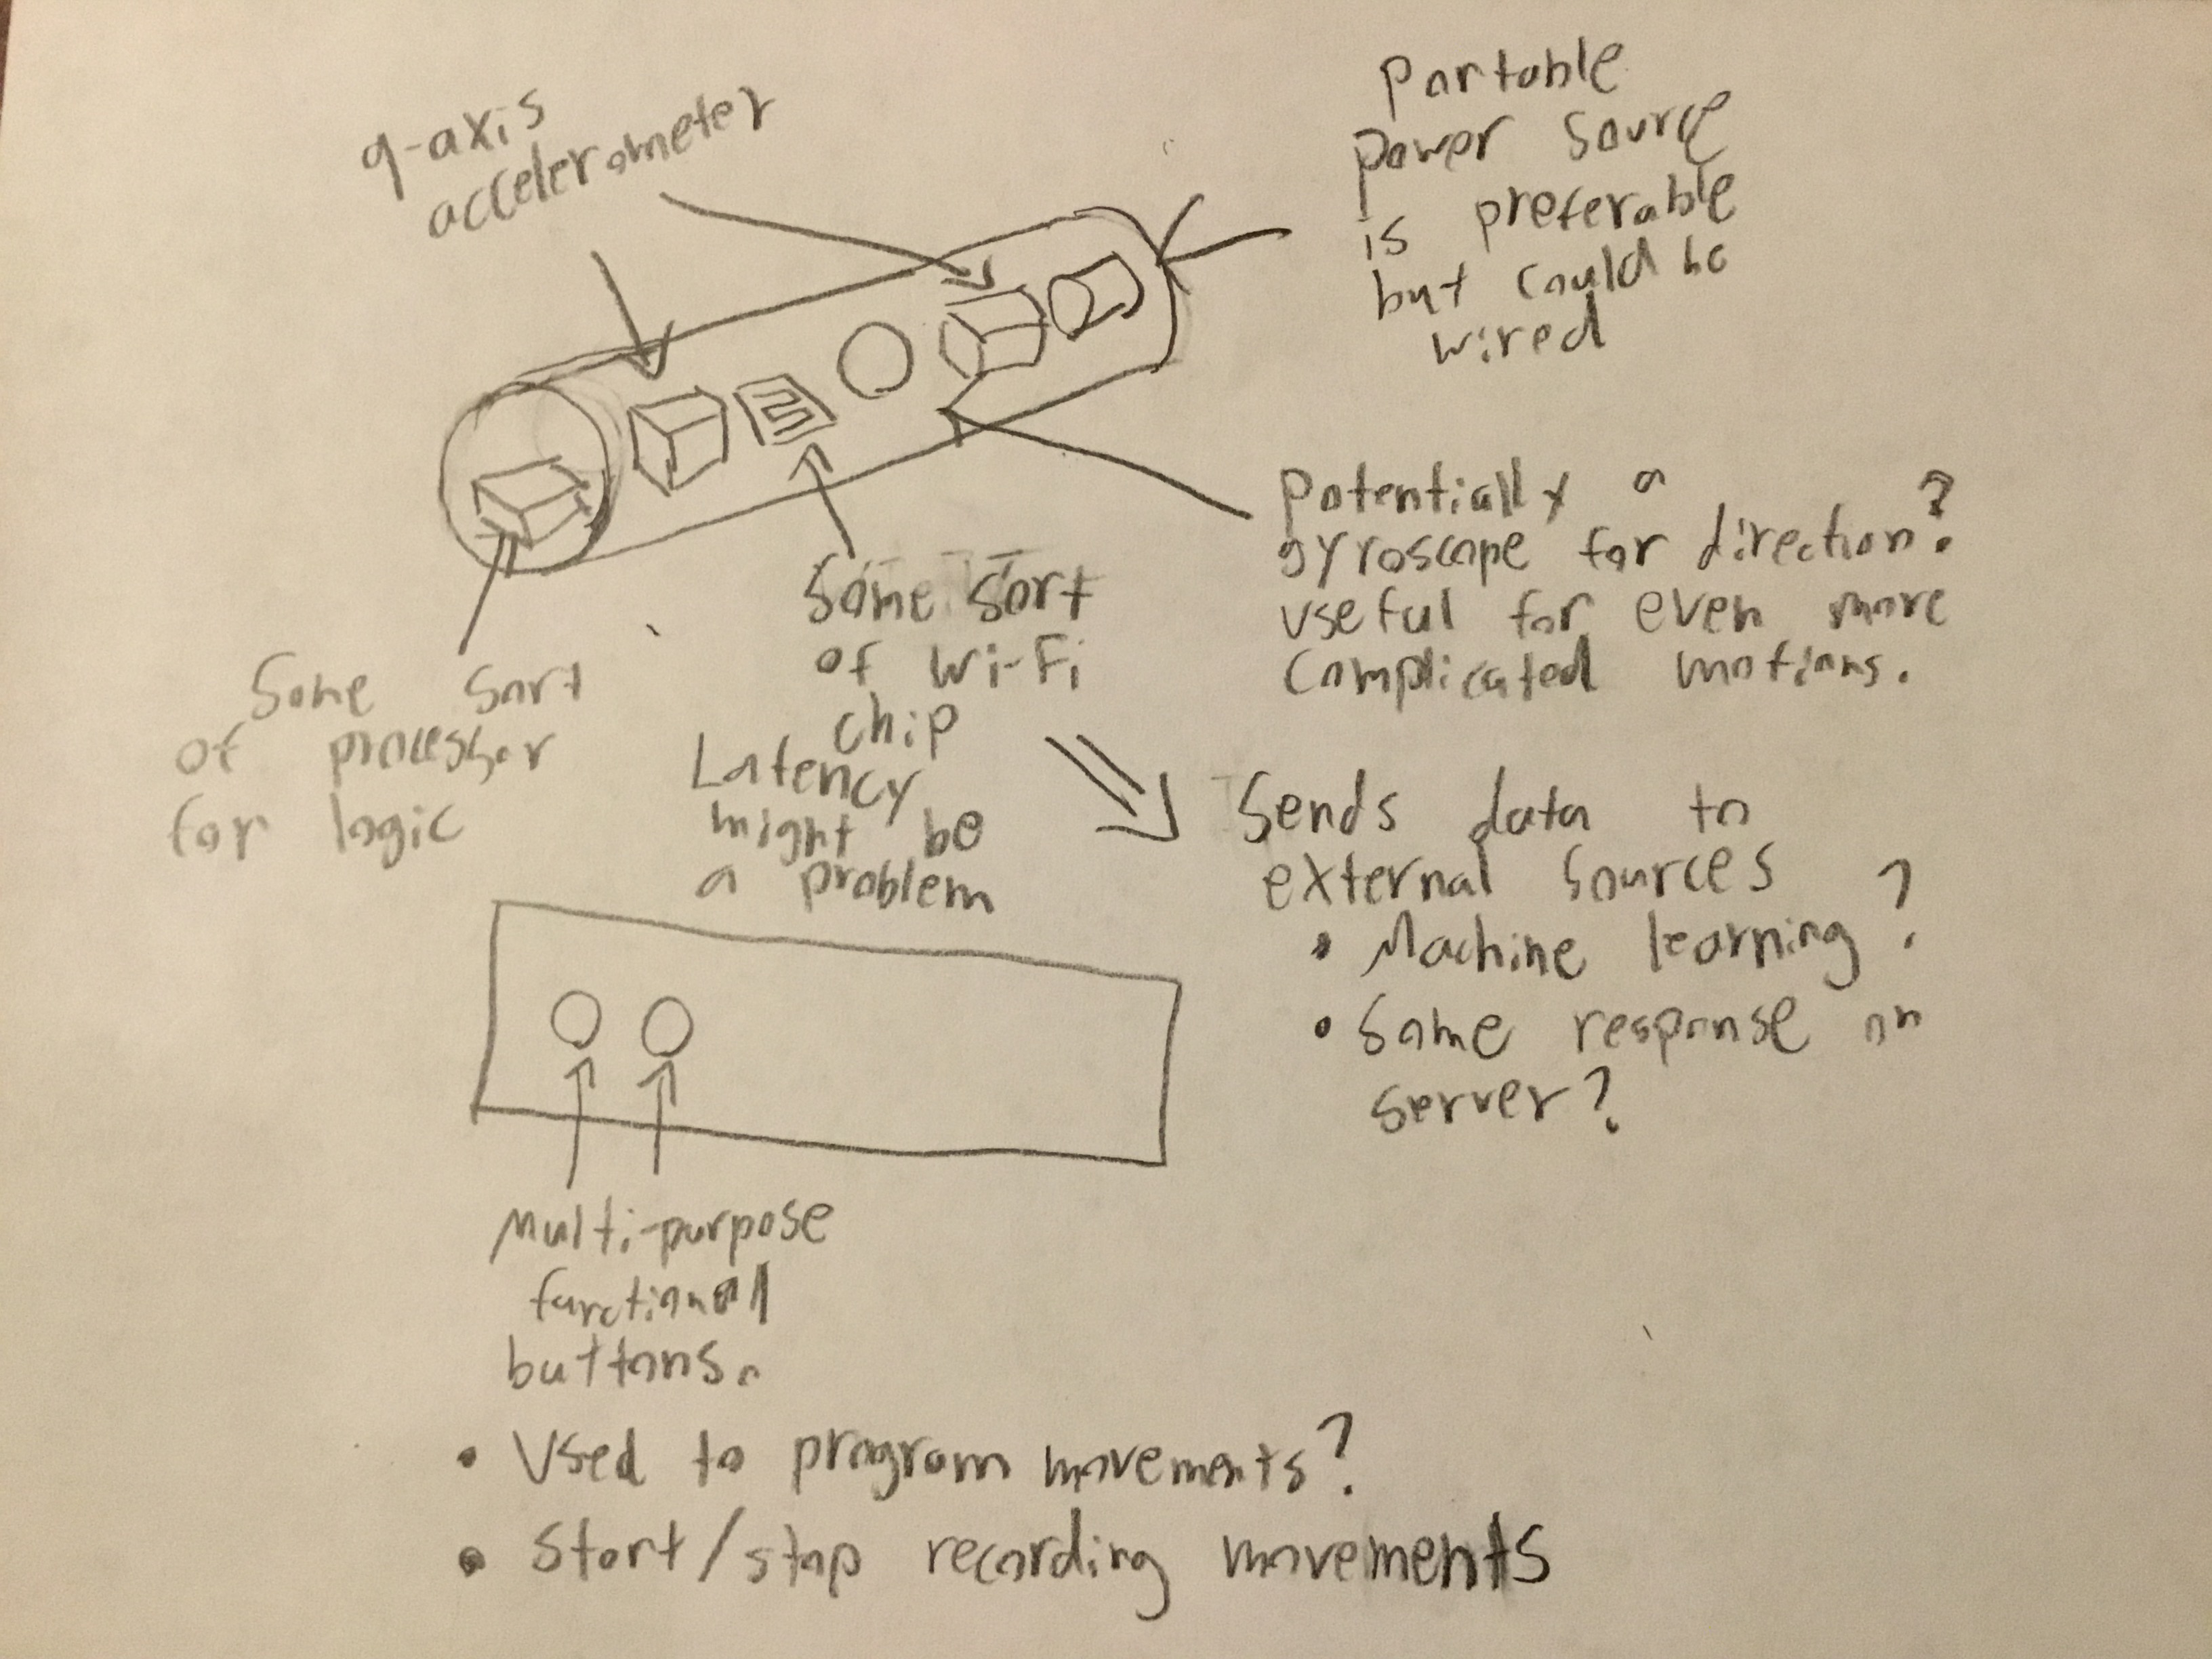 9-axis
accelerometer
Portable
power source
is preferable
but could be
wired
Potentially a
gyroscope for direction?
useful for even more
complicated motions.
Some sort
of Wi-Fi
chip
Latency
might be
a problem
Some sort
of processor
for logic
Sends data to
external sources
• Machine learning?
• Some response on
server?
Multi-purpose
functional
buttons.
• Used to program movements?
• Start/stop recording movements